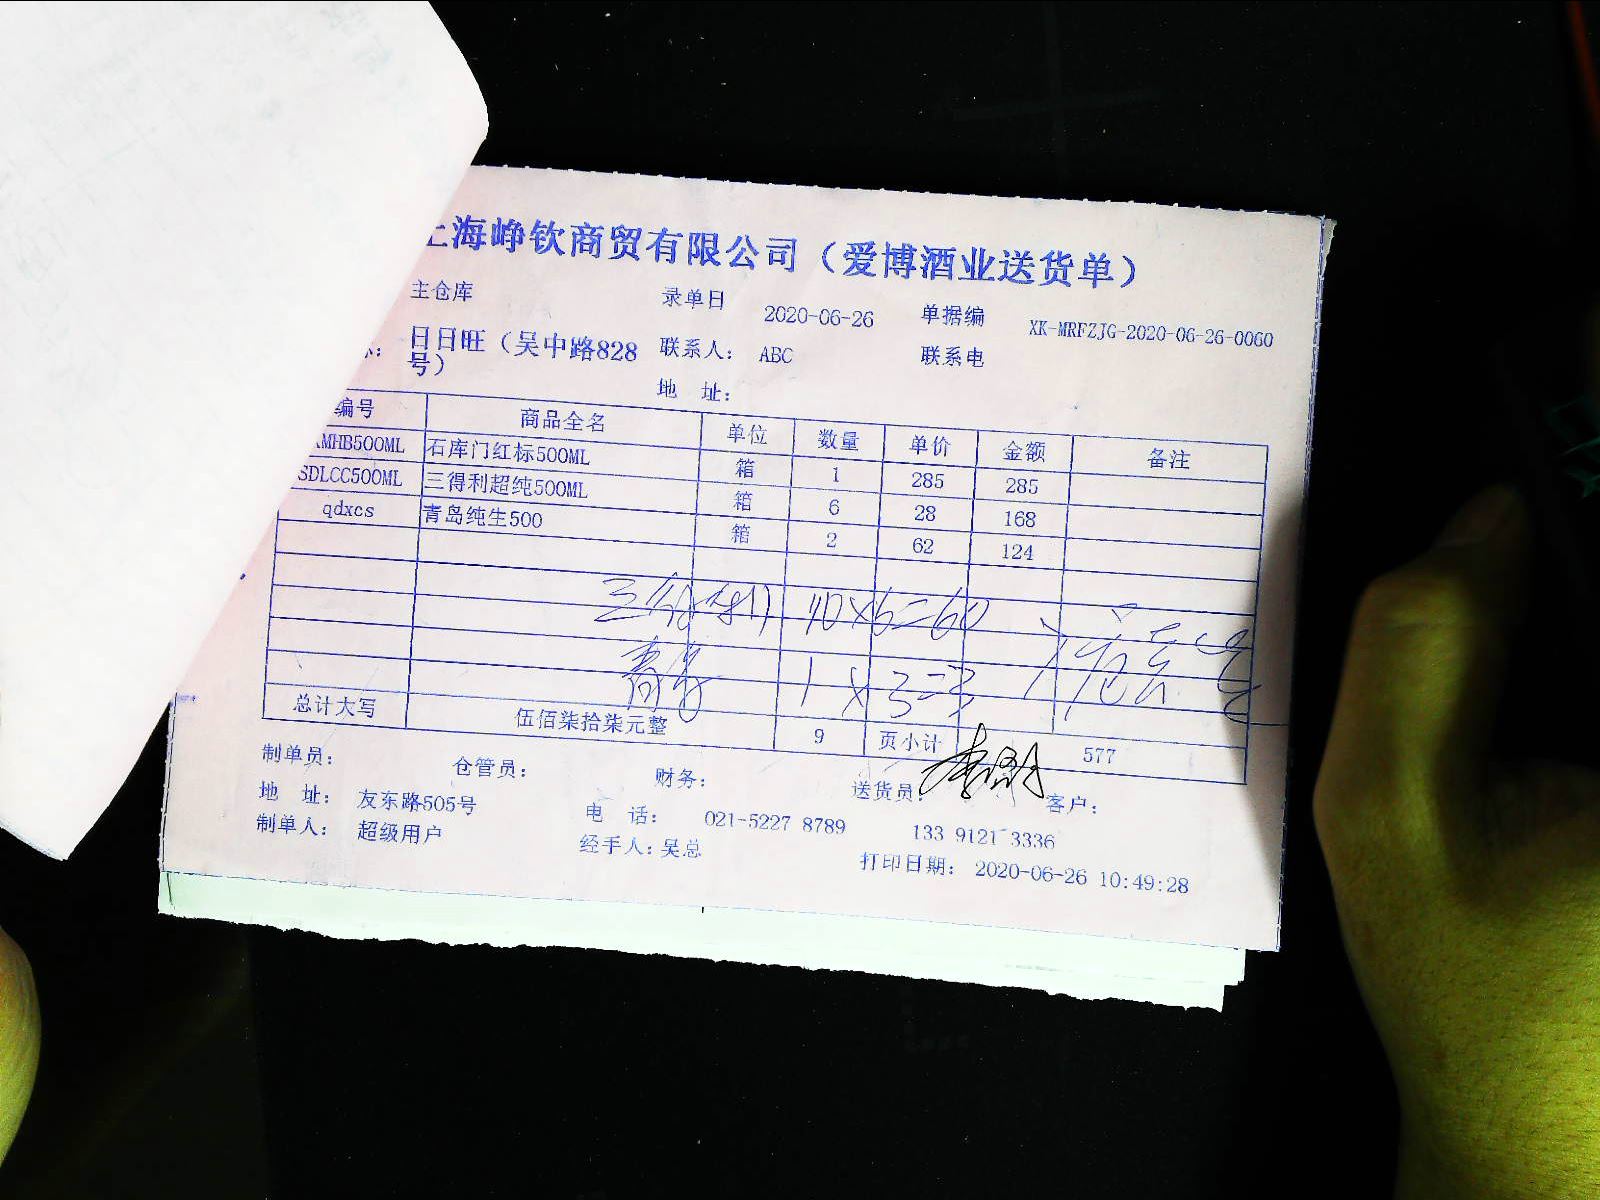 上海峥钦商贸有限公司（爱博酒业送货单）
主仓库 录单日 2020-06-26 单据编 XK-MRFZJG-2020-06-26-0060
日日旺（吴中路828号） 联系人： ABC 联系电
地 址：
编号 商品全名 单位 数量 单价 金额 备注
MHB500ML 石库门红标500ML 箱 1 285 285
SDLCC500ML 三得利超纯500ML 箱 6 28 168
qdxcs 青岛纯生500 箱 2 62 124
10×6=60
1×3=3
总计大写 伍佰柒拾柒元整 9 页小计 577
制单员： 仓管员： 财务： 送货员： 客户：
地 址： 友东路505号 电 话： 021-5227 8789 133 9121 3336
制单人： 超级用户 经手人：吴总 打印日期： 2020-06-26 10:49:28